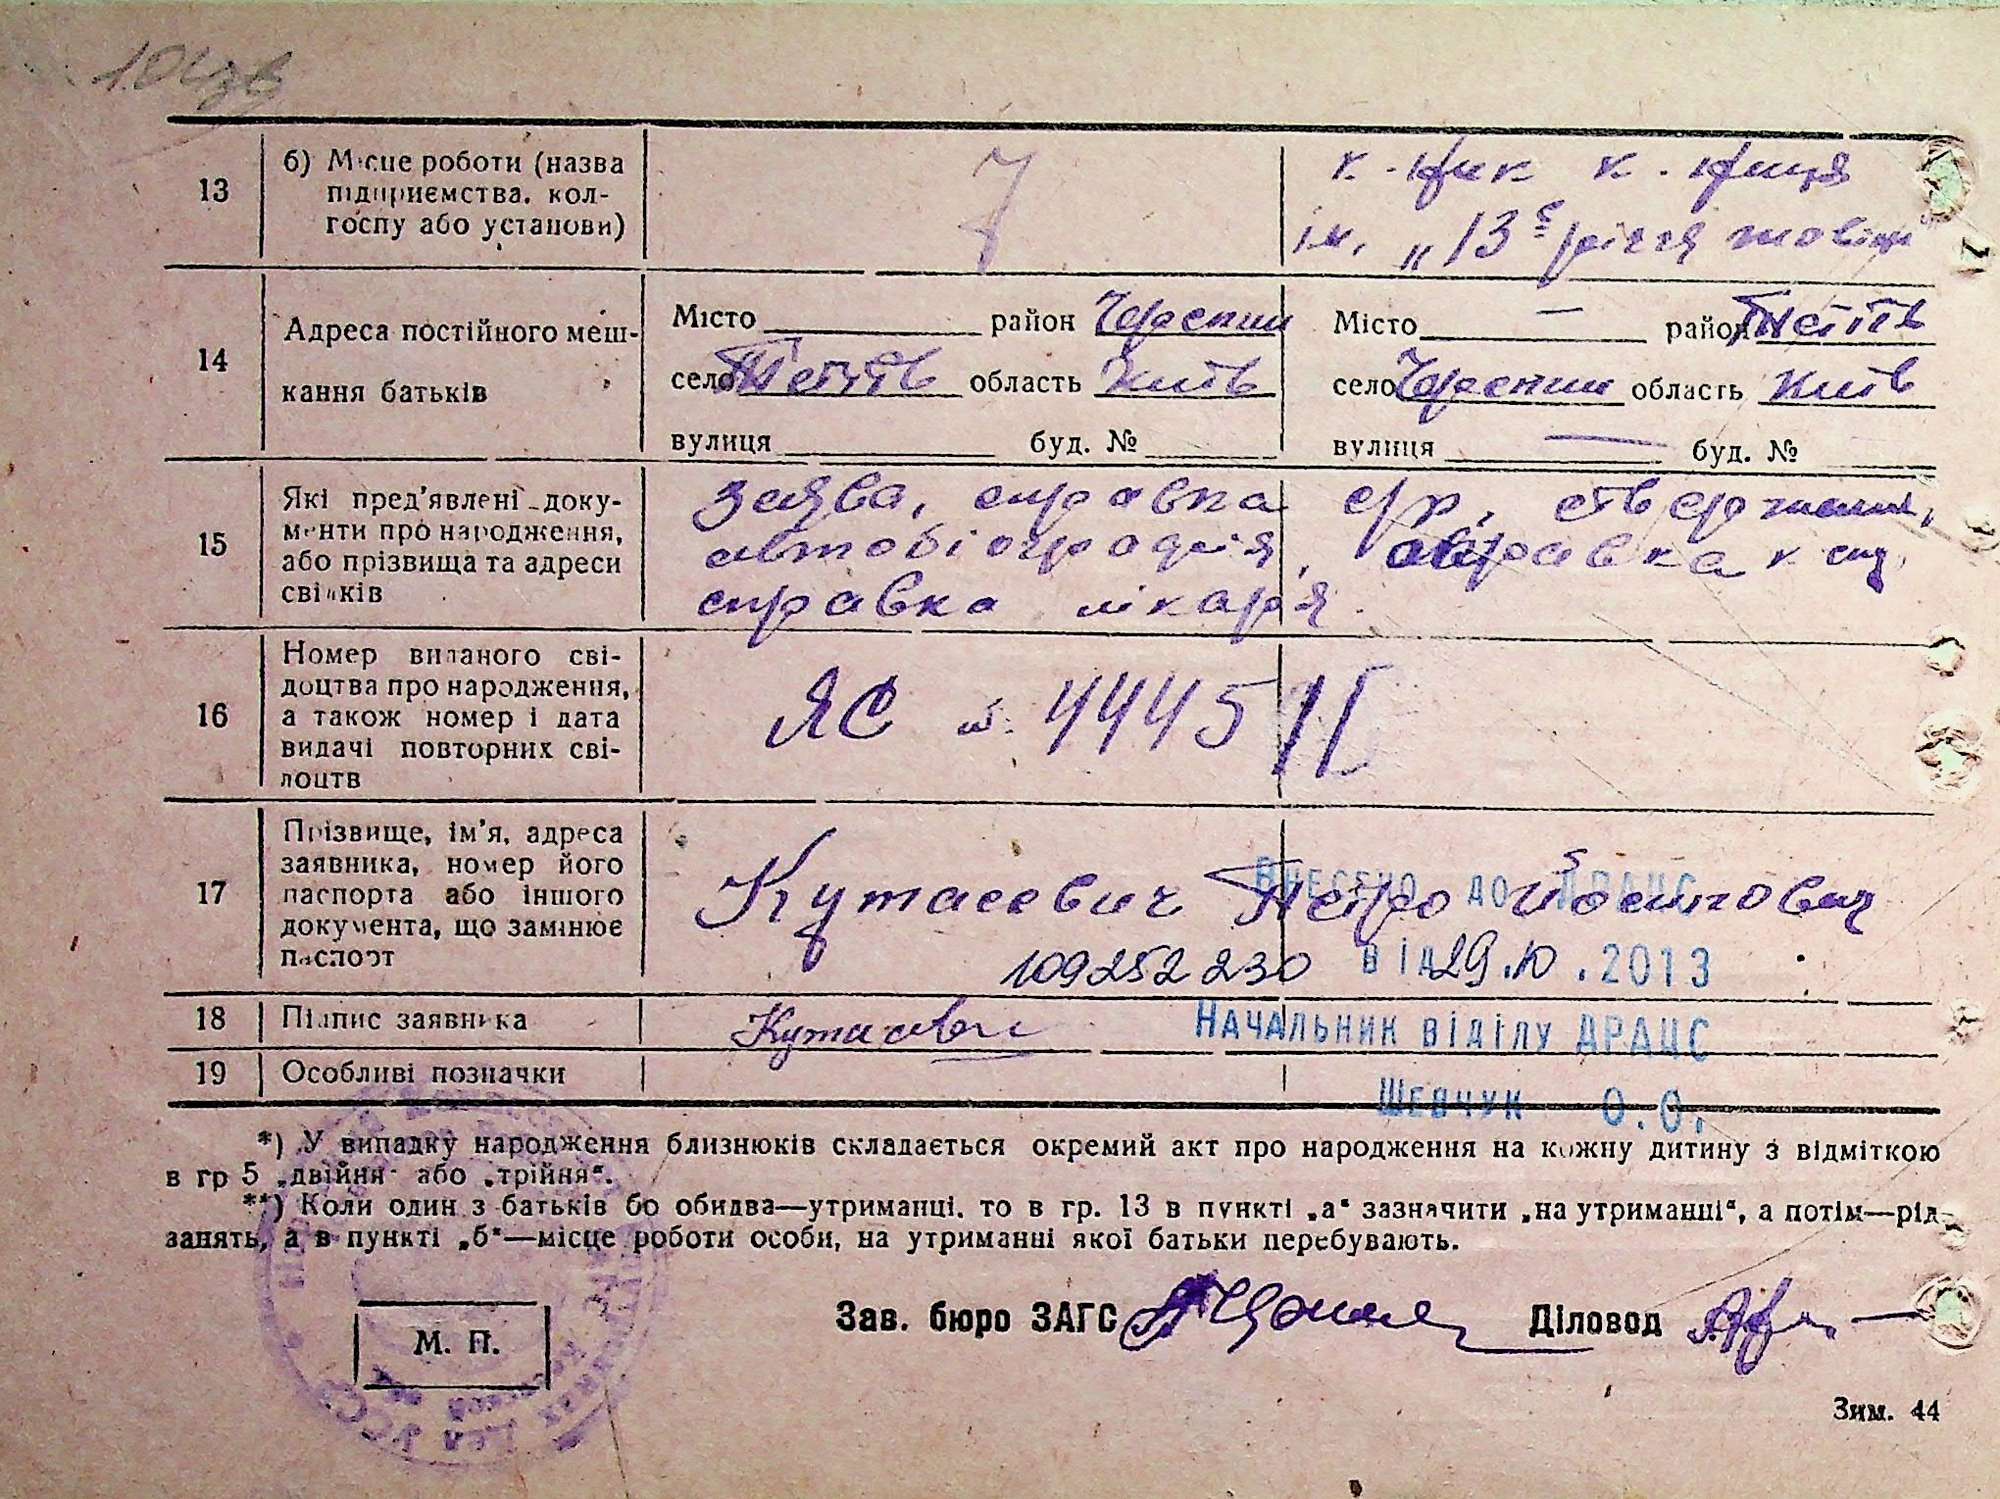 104зв
13
б) Місце роботи (назва
підприємства, кол-
госпу або установи)
к-ник к-ниця
ім. „13 річчя
14
Адреса постійного меш-
кання батьків
Місто район
село Тетіїв область Київ
вулиця буд. №
Місто — район Тетіїв
село область Київ
вулиця — буд. №
15
Які пред'явлені доку-
менти про народження,
або прізвища та адреси
свідків
Заява, справка с/р, ствердження,
автобіографія, справка
справка лікаря.
16
Номер виданого сві-
доцтва про народження,
а також номер і дата
видачі повторних сві-
доцтв
ЯС № 444511
17
Прізвище, ім'я, адреса
заявника, номер його
паспорта або іншого
документа, що замінює
паспорт
Кутасевич Петро Йосипович
Внесено до ДРАЦС
109252230 від 29.10.2013
18
Підпис заявника
Начальник відділу ДРАЦС
19
Особливі позначки
Шевчук О.О.
*) У випадку народження близнюків складається окремий акт про народження на кожну дитину з відміткою
в гр 5 „двійня" або „трійня".
**) Коли один з батьків бо обидва—утриманці, то в гр. 13 в пункті „а" зазначити „на утриманні", а потім—рід
занять, а в пункті „б"—місце роботи особи, на утриманні якої батьки перебувають.
М. П.
Зав. бюро ЗАГС
Діловод
Зим. 44